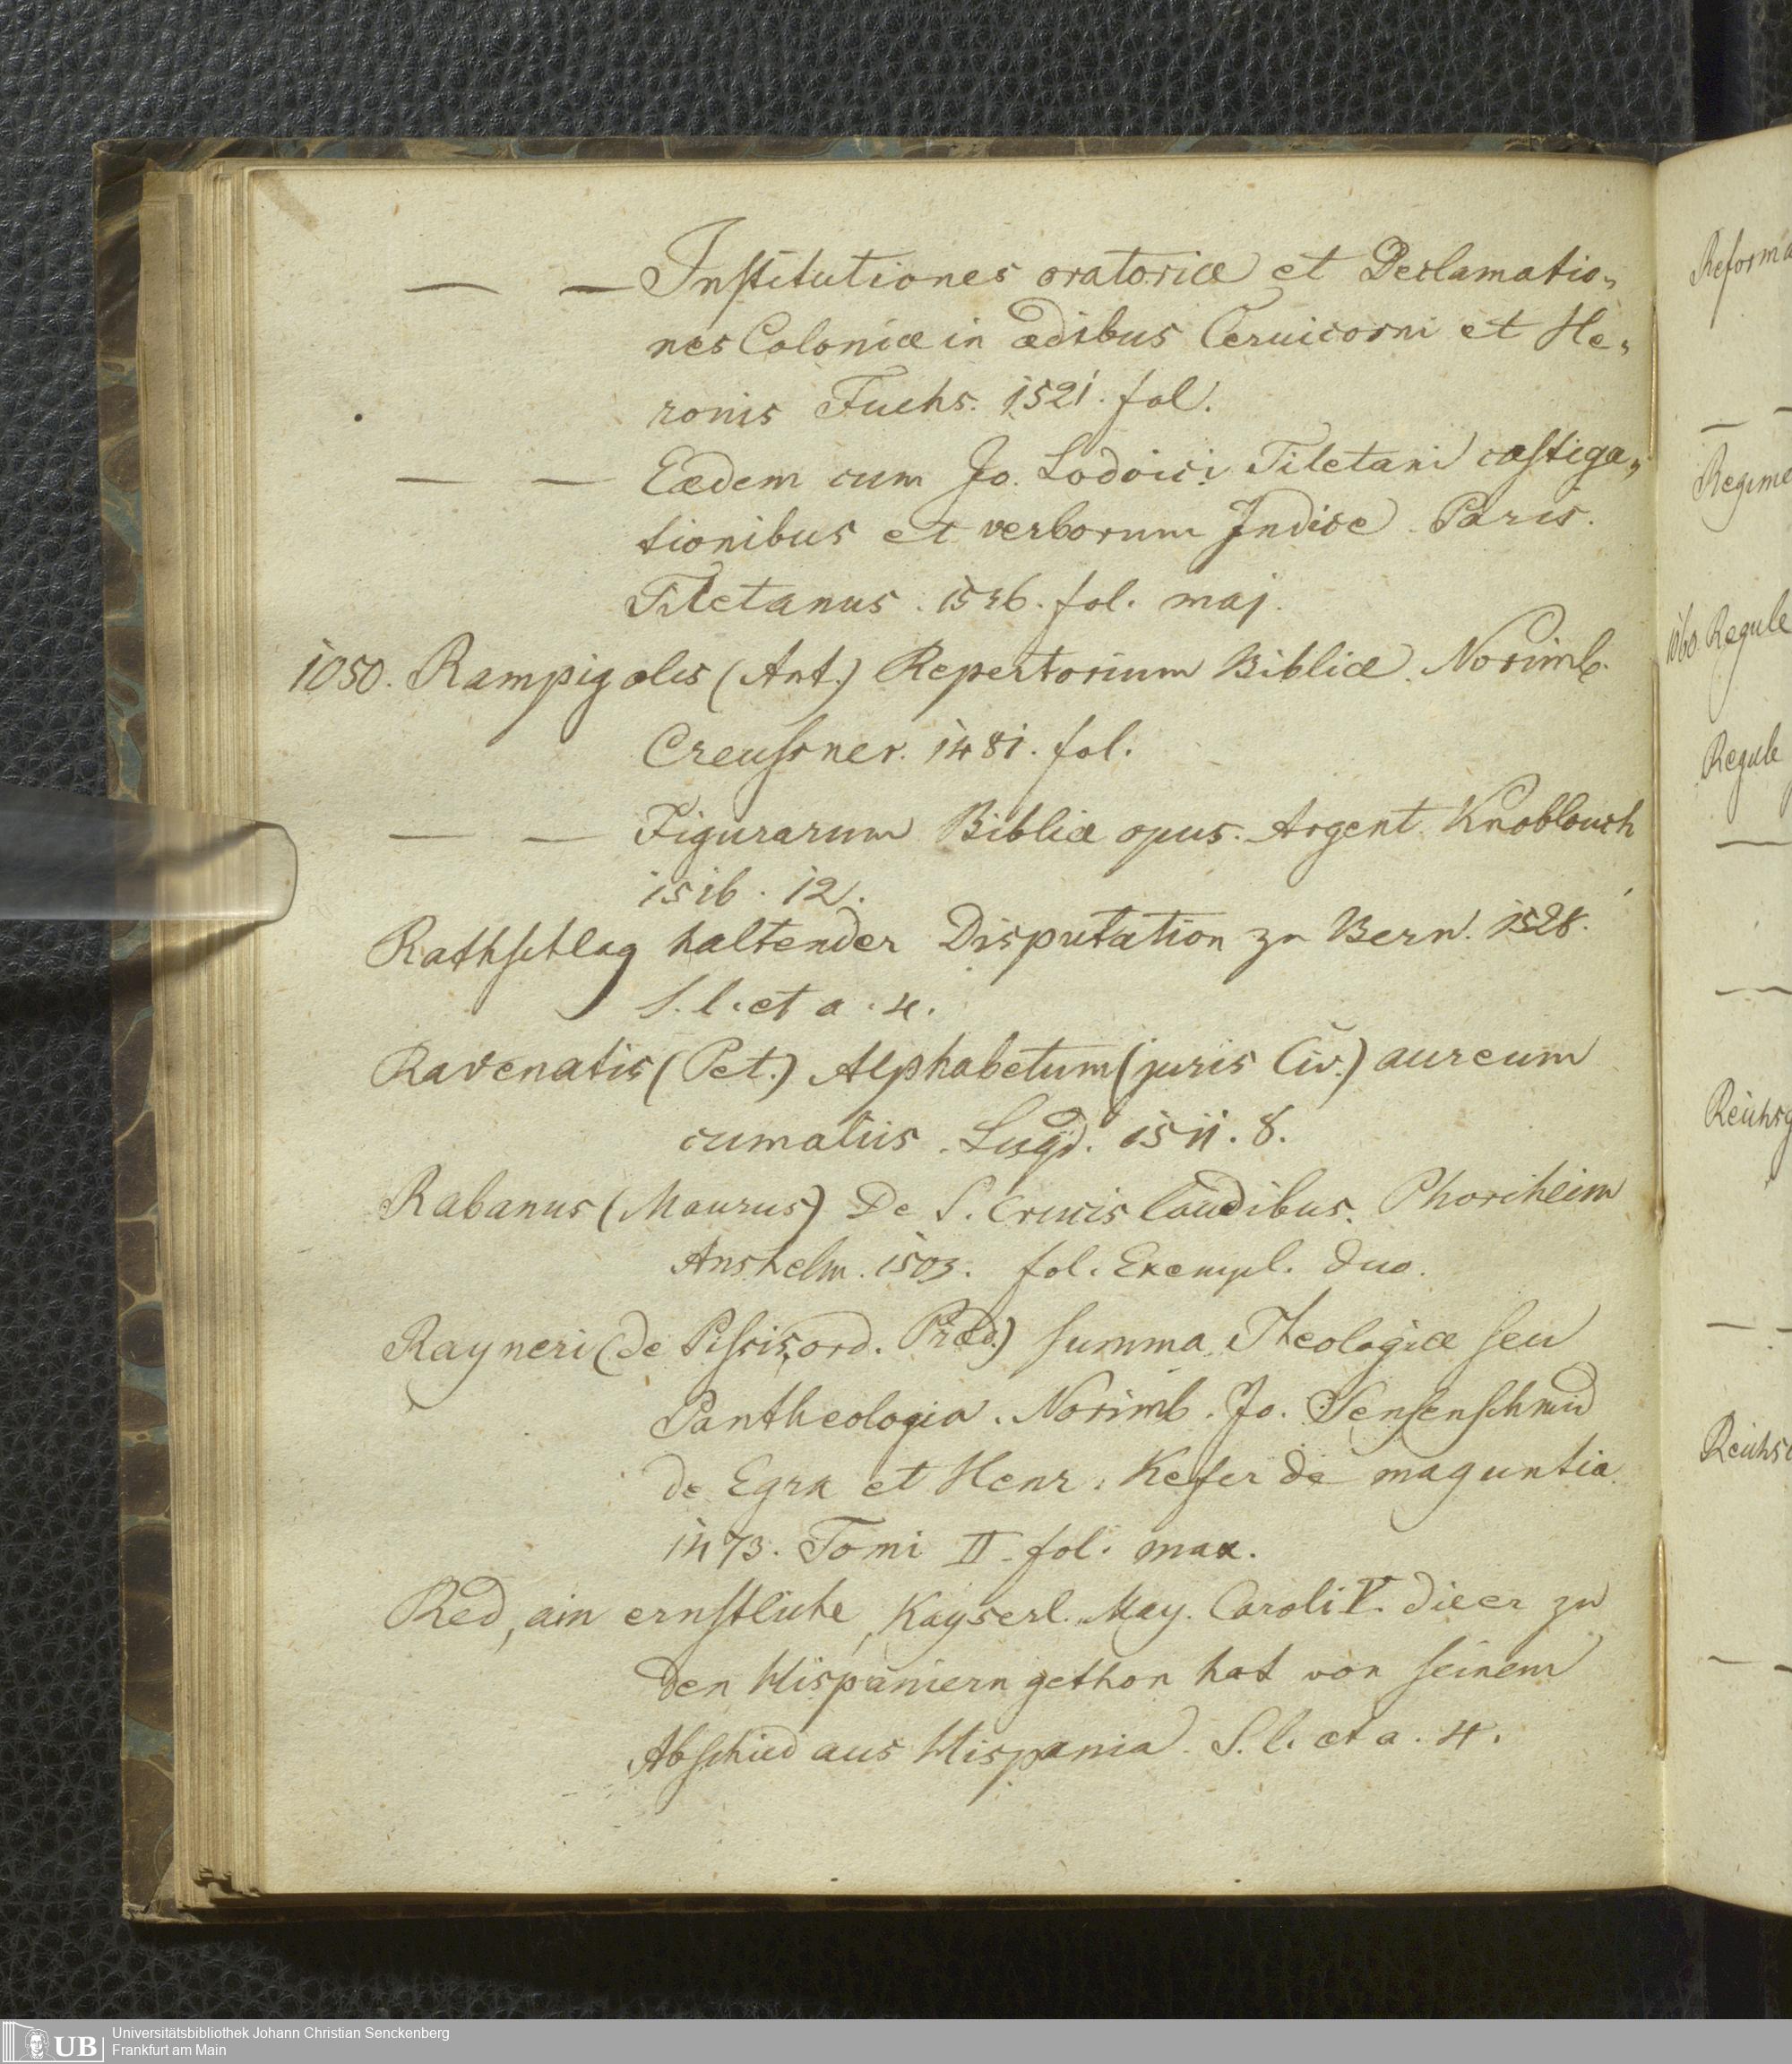 — — Institutiones oratoriæ et Declamatio„
nes Coloniæ in ædibus Ceruicorni et He„
ronis Fuchs. 1521. fol.
— — Eædem cum Jo. Lodoici Tiletani castiga„
tionibus et verborum Indice Paris.
Tiletanus. 1536. fol. maj.
1050. Rampigolis (Ant.) Repertorium Bibliæ. Norimb.
Creussner. 1481. fol.
— — Figurarum Bibliæ opus. Argent. Knoblouch
1516. 12.
Rathschlag haltender Disputation zu Bern. 1528.
S. l. et a. 4.
Ravenatis (Pet.) Alphabetum (juris Civ.) aureum
cum aliis. Lugd. 1511. 8.
Rabanus (Maurus) De S. Crucis laudibus. Phorcheim
Anshelm. 1503. fol. Exempl. duo.
Rayneri (de Pissis, ord. Præd.) summa Theologiæ seu
Pantheologia. Norimb. Jo. Sensenschmid
de Egra et Henr. Kefer de maguntia
1473. Tomi II. fol. max.
Red, ain ernstliche, Kayserl. May. Caroli V. die er zu
den Hispaniern gethon hat von seinem
Abschied aus Hispania. S. l. et a. 4.
Reforma
— —
Regime
1060. Regule
Regule
—
—
Reichs
— —
Reichs
— —
UB
Universitätsbibliothek Johann Christian Senckenberg
Frankfurt am Main